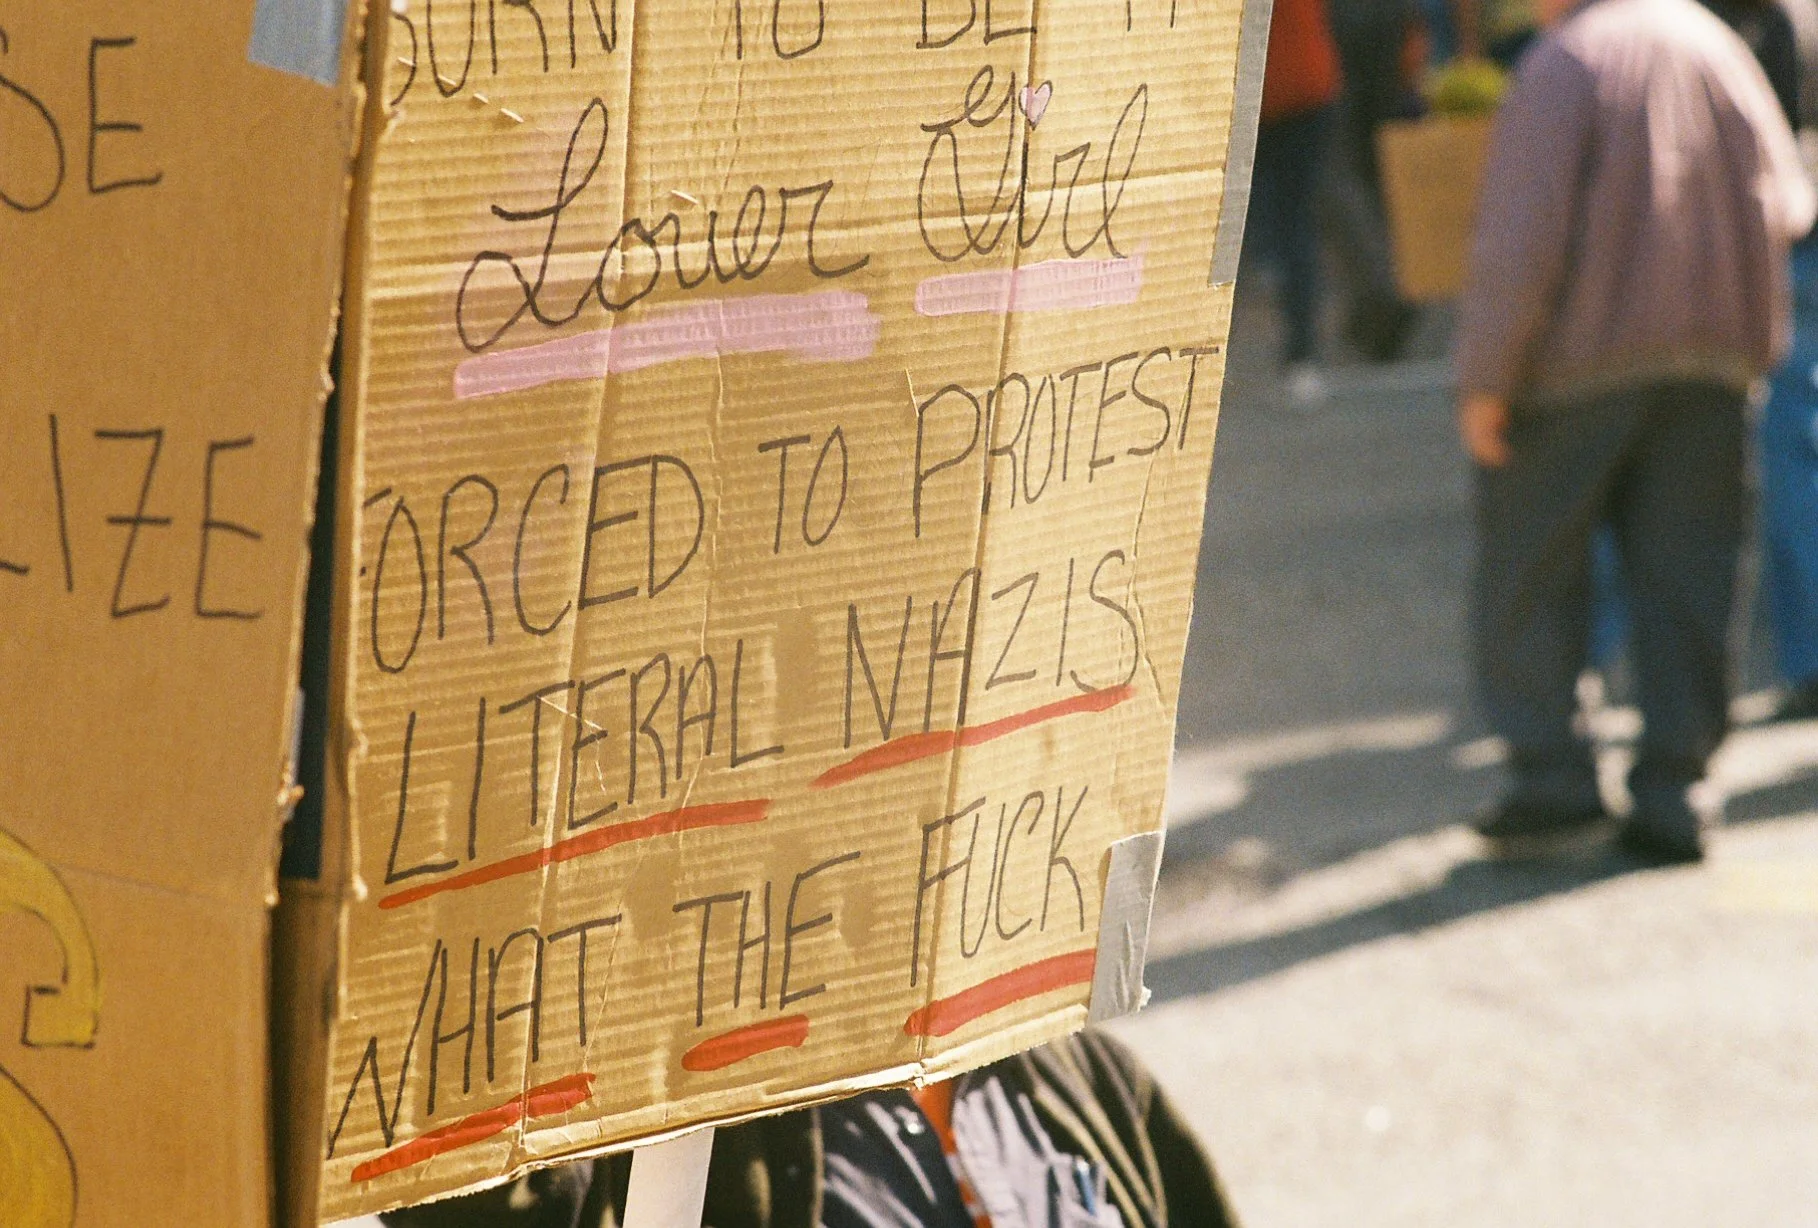 SE
IZE
BORN TO BE A
Lover Girl
FORCED TO PROTEST
LITERAL NAZIS
WHAT THE FUCK